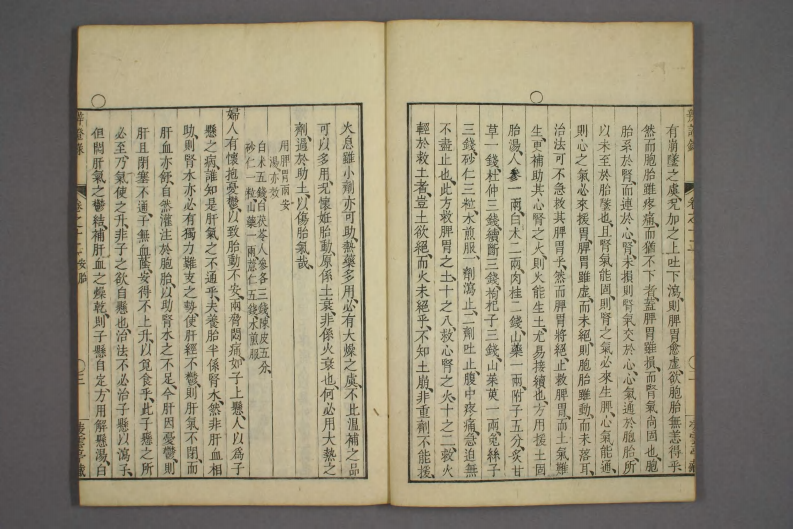 有崩墜之虞況加之上吐下瀉則脾胃愈虛欲胞胎無恙得乎
然而胞胎雖疼痛而猶不下者蓋脾胃雖損而腎氣尚固也胞
胎系於腎而連於心腎未損則腎氣交於心心氣通於胞胎所
以未至於胎墜也且腎氣能固則腎之氣必來生脾心氣能通
則心之氣必來援胃脾胃雖虛而未絕則胞胎雖動而未落耳
治法可不急救其脾胃乎然而脾胃將絕止救脾胃而土氣難
生更補助其心腎之火則火能生土尤易接續也方用援土固
胎湯人參一兩白朮二兩肉桂二錢山藥一兩附子五分炙甘
草一錢杜仲三錢續斷三錢枸杞子三錢山茱萸一兩菟絲子
三錢砂仁三粒水煎服一劑瀉止二劑吐止腹中疼痛急迫無
不盡止也此方救脾胃之土十之八救心腎之火十之二救火
輕於救土者豈土欲絕而火未絕乎不知土崩非重劑不能援
火息雖小劑亦可助熱藥多用必有大燥之虞不比溫補之品
可以多用況懷妊胎動原係土衰非係火衰也何必用大熱之
劑過於助土以傷胎氣哉
用脾胃兩安
湯亦效
白朮五錢白茯苓人參各三錢陳皮五分
砂仁一粒山藥一兩薏仁五錢水煎服
婦人有懷抱憂鬱以致胎動不安兩脅悶痛如子上懸人以為子
懸之病誰知是肝氣之不通乎夫養胎半係腎水然非肝血相
助則腎水亦必有獨力難支之勢使肝經不鬱則肝氣不閉而
肝血亦舒自然灌注於胞胎以助腎水之不足今肝因憂鬱則
肝且閉塞不通子無血蔭安得不上升以覓食乎此子懸之所
必至乃氣使之升非子之欲自懸也治法不必治子懸以瀉子
但開肝氣之鬱結補肝血之燥乾則子懸自定方用解懸湯白